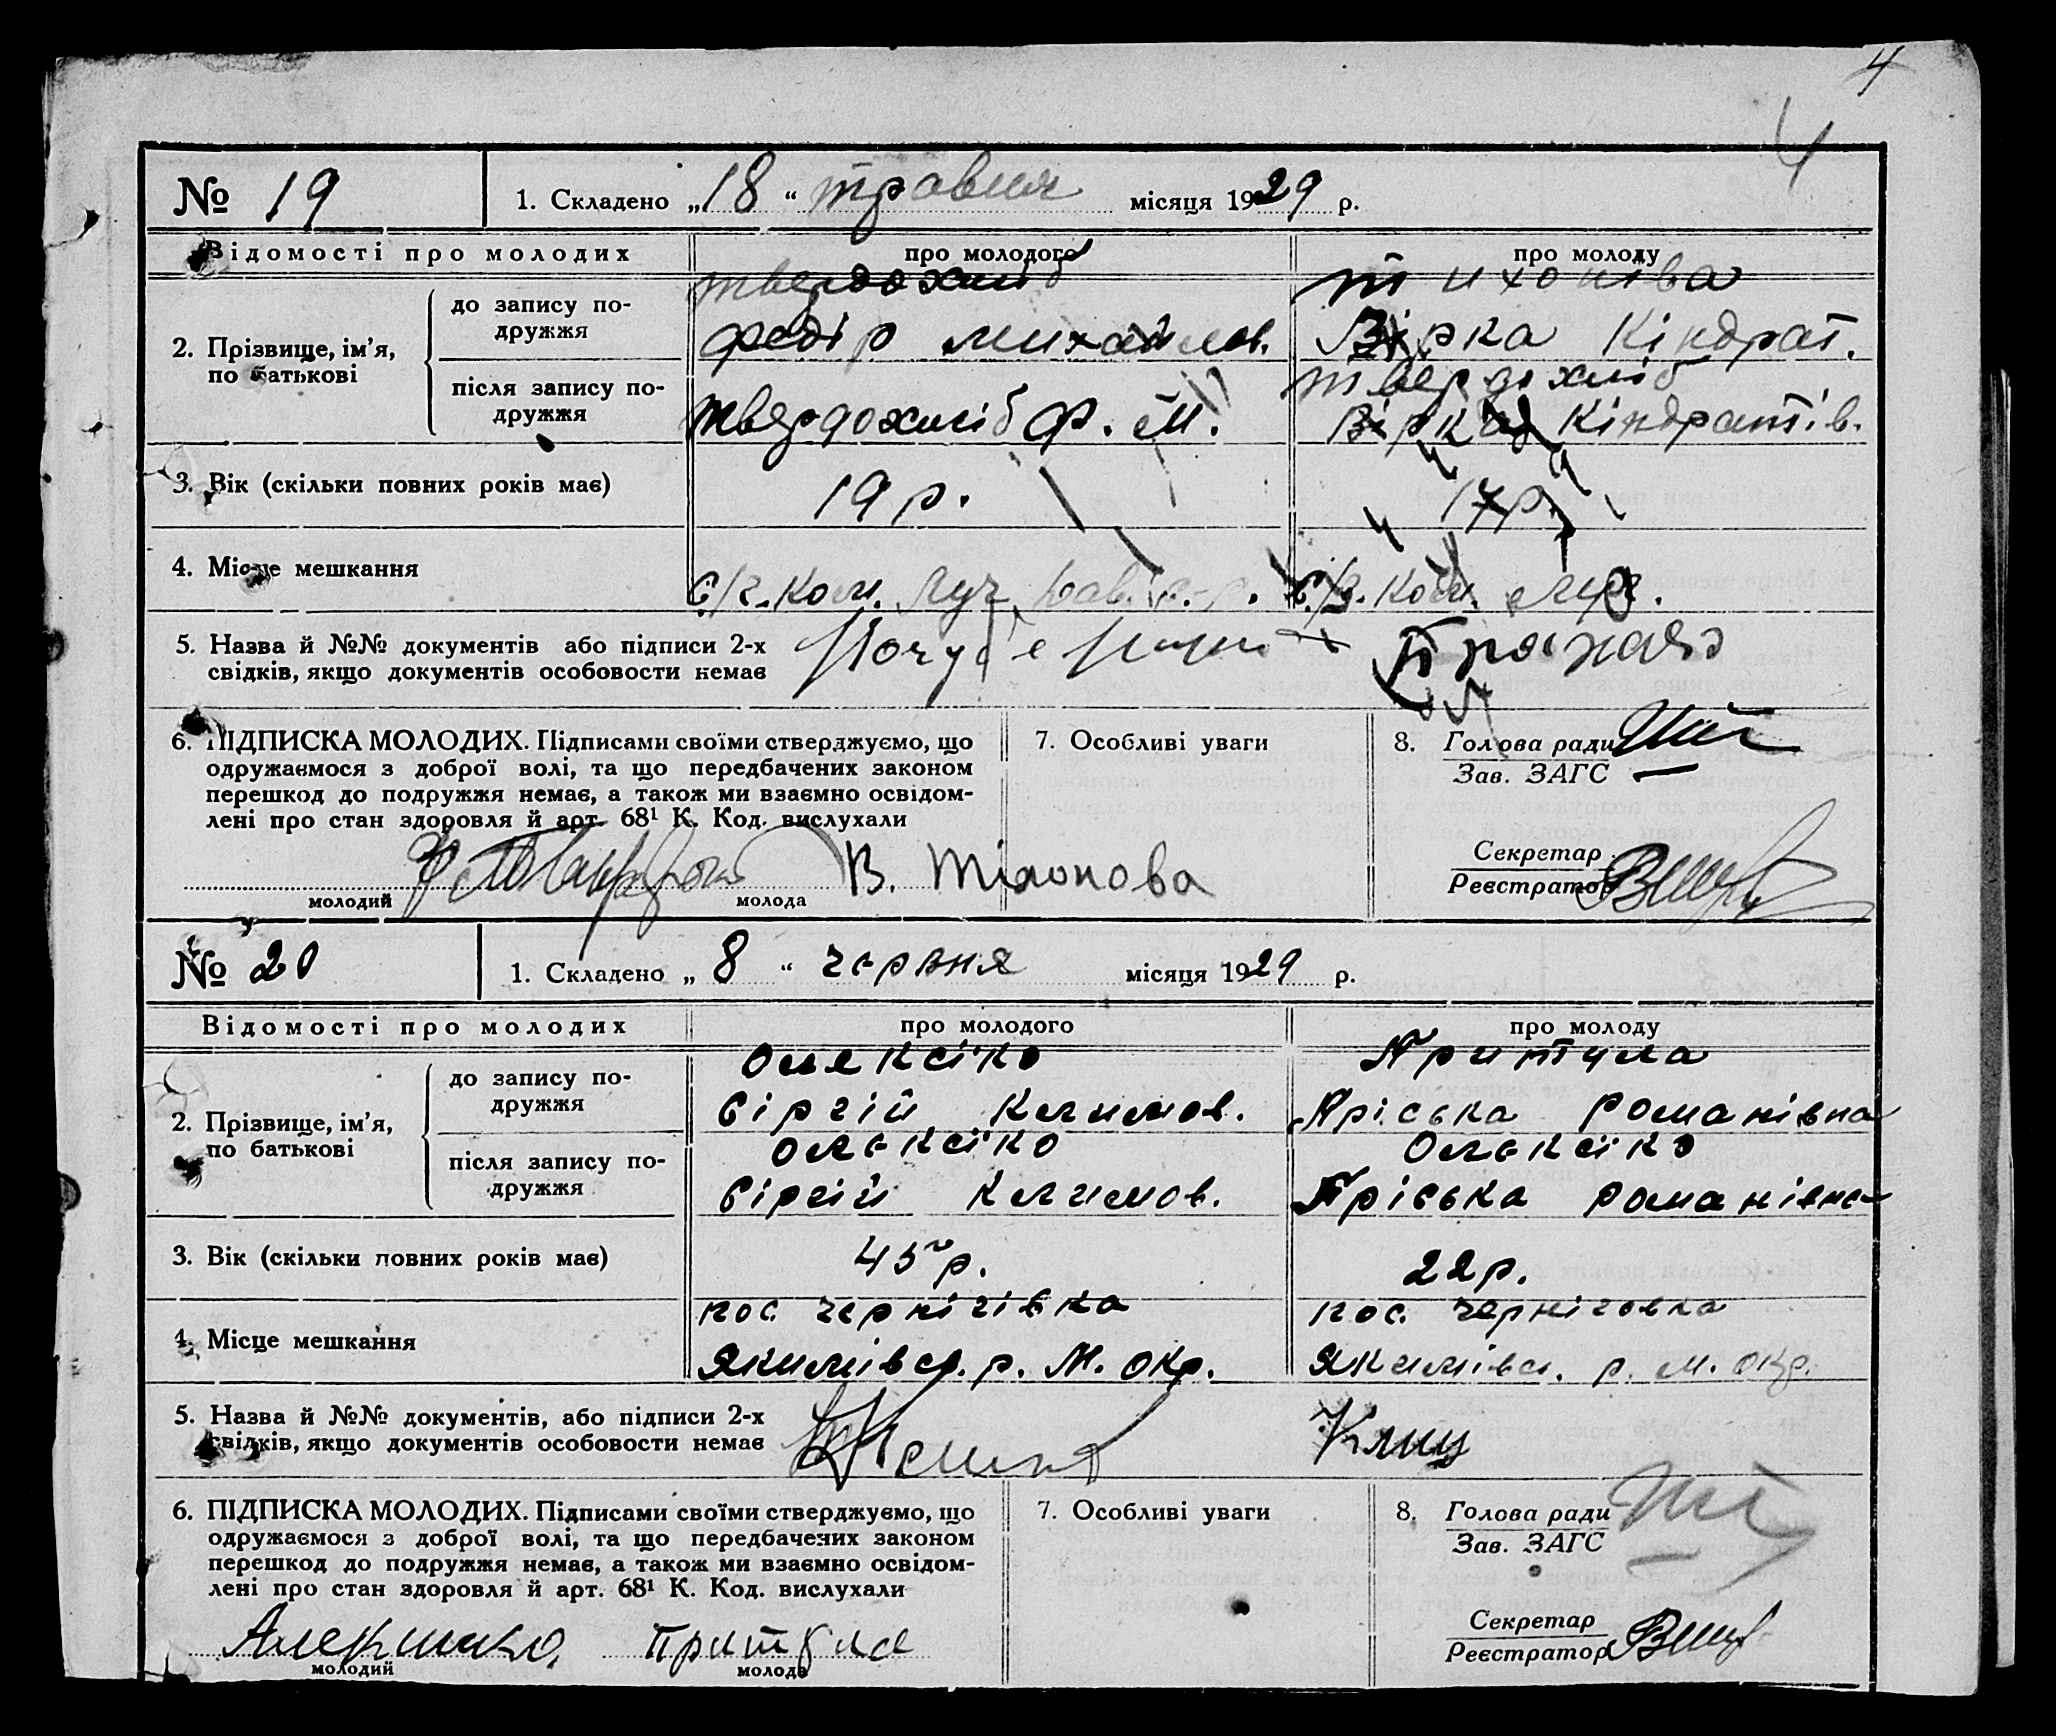 4
4
№ 19 1. Складено „18“ травня місяця 1929 р.
Відомості про молодих про молодого про молоду
2. Прізвище, ім'я, по батькові
до запису подружжя
твердохліб
федір михайлов.
тихонова
Вірка Кіндрат.
після запису подружжя
твердохліб Ф. М.
твердохліб
Вірка Кіндратів.
3. Вік (скільки повних років має) 19 р. 17 р.
4. Місце мешкання
С/г. Ком. Луч С/г. Ком. Луч.
5. Назва й №№ документів або підписи 2-х
свідків, якщо документів особовости немає
6. ПІДПИСКА МОЛОДИХ. Підписами своїми стверджуємо, що
одружаємося з доброї волі, та що передбачених законом
перешкод до подружжя немає, а також ми взаємно освідом-
лені про стан здоровля й арт. 68¹ К. Код. вислухали
7. Особливі уваги
8. Голова ради
Зав. ЗАГС
Секретар
Реєстратор
В. Тіхонова
молодий молода
№ 20 1. Складено „ 8 “ червня місяця 1929 р.
Відомості про молодих про молодого про молоду
2. Прізвище, ім'я, по батькові
до запису подружжя
Олексіко
Сіргій Климов.
Притула
Пріська романівна
після запису подружжя
Олексіко
Сіргій Климов.
Олексіко
Пріська романівна
3. Вік (скільки повних років має) 45 р. 22 р.
4. Місце мешкання
пос. чернігівка
Якимівсв. р. М. окр.
пос. черніговка
Якимівсв. р. М. окр.
5. Назва й №№ документів, або підписи 2-х
свідків, якщо документів особовости немає
Клищ
6. ПІДПИСКА МОЛОДИХ. Підписами своїми стверджуємо, що
одружаємося з доброї волі, та що передбачених законом
перешкод до подружжя немає, а також ми взаємно освідом-
лені про стан здоровля й арт. 68¹ К. Код. вислухали
7. Особливі уваги
8. Голова ради
Зав. ЗАГС
Секретар
Реєстратор
Притула
молодий молода